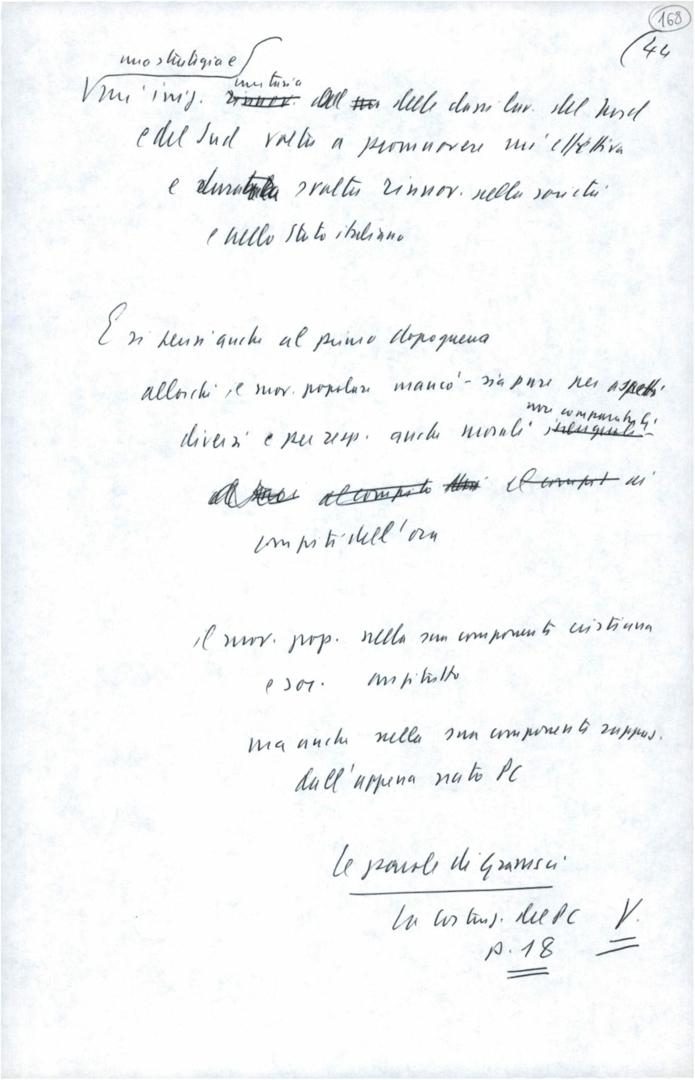 168
(44
una strategia e
unitaria
Un'iniz. rinnov. delle classi lav. del Nord
e del Sud volta a promuovere un'effettiva
e svolta rinnov. nella società
e nello Stato italiano
E si pensi anche al primo dopoguerra
allorché il mov. popolare mancò - sia pure per aspetti
non comparabili
diversi e per resp. anche morali
al compito il compit ai
compiti dell'ora
il mov. pop. nella sua componente cristiana
e soc. anzitutto
ma anche nella sua componente rappres.
dall'appena nato PC
Le parole di Gramsci
La costruz. del PC V.
p. 18